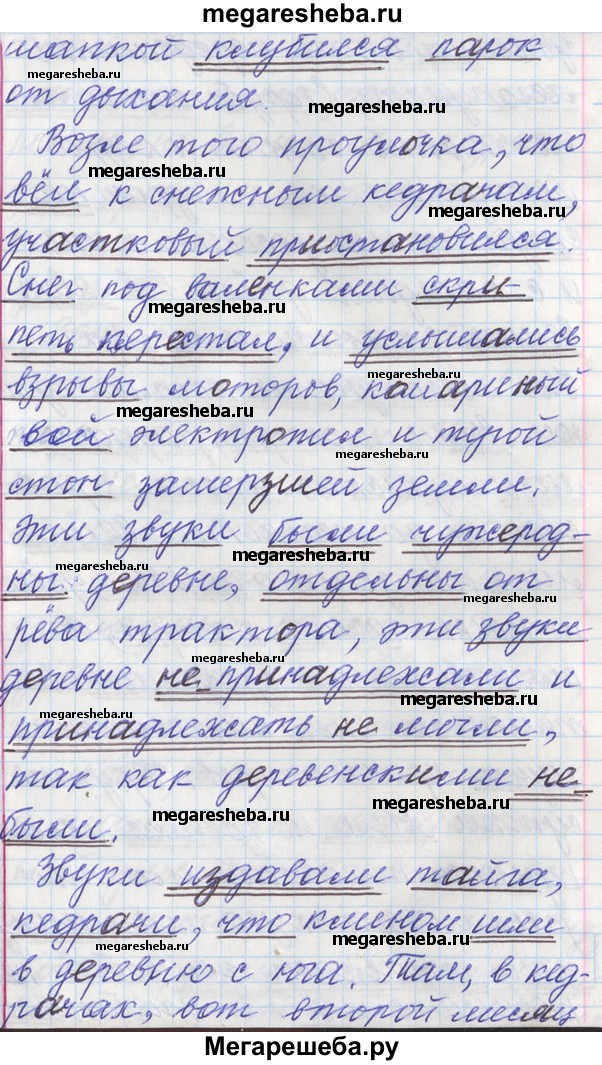 megaresheba.ru
шапкой клубился парок
megaresheba.ru
megaresheba.ru
от дыхания.
megaresheba.ru
Возле того проулочка, что
megaresheba.ru
вёл к снежным кедрачам,
megaresheba.ru
участковый приостановился.
Снег под валенками скри-
megaresheba.ru
петь перестал, и услышались
megaresheba.ru
взрывы моторов, комариный
megaresheba.ru
вой электропил и тупой
megaresheba.ru
стон замерзшей земли.
Эти звуки были чужерод-
megaresheba.ru
megaresheba.ru
ны деревне, отдельны от
megaresheba.ru
рёва трактора, эти звуки
megaresheba.ru
деревне не принадлежали и
megaresheba.ru
megaresheba.ru
принадлежать не могли,
megaresheba.ru
так как деревенскими не
megaresheba.ru
megaresheba.ru
были.
Звуки издавали тайга,
megaresheba.ru
кедрачи, что клином шли
megaresheba.ru
megaresheba.ru
в деревню с юга. Там, в кед-
megaresheba.ru
рачах, вот второй месяц
Мегарешеба.ру